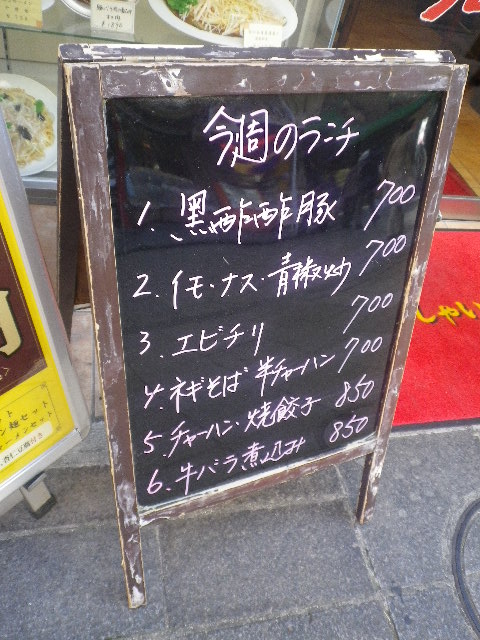 今週のランチ
1. 黒酢酢豚 700
2. イモ・ナス・青椒炒 700
3. エビチリ 700
4. ネギそば 半チャーハン 700
5. チャーハン・焼餃子 850
6. 牛バラ煮込み 850
しゃい